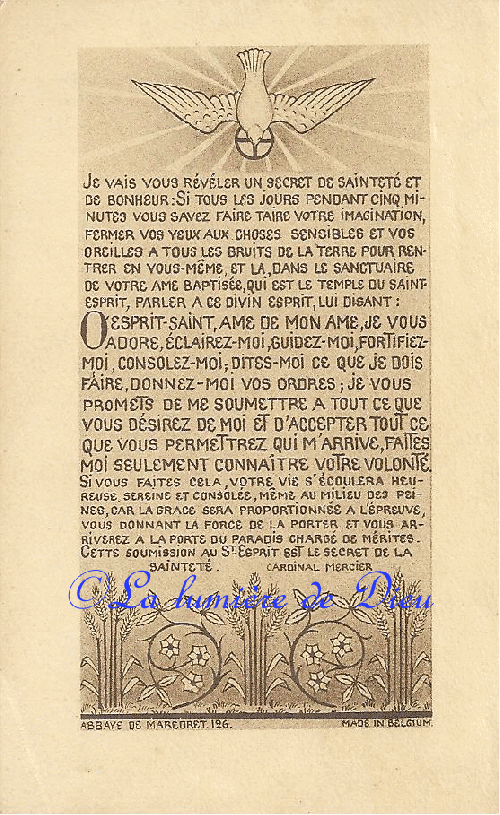 JE VAIS VOUS RÉVÉLER UN SECRET DE SAINTETÉ ET
DE BONHEUR : SI TOUS LES JOURS PENDANT CINQ MI-
NUTES VOUS SAVEZ FAIRE TAIRE VOTRE IMAGINATION,
FERMER VOS YEUX AUX CHOSES SENSIBLES ET VOS
OREILLES A TOUS LES BRUITS DE LA TERRE POUR REN-
TRER EN VOUS-MÊME, ET LA, DANS LE SANCTUAIRE
DE VOTRE AME BAPTISÉE, QUI EST LE TEMPLE DU SAINT-
ESPRIT, PARLER A CE DIVIN ESPRIT, LUI DISANT :
O ESPRIT-SAINT, AME DE MON AME, JE VOUS
ADORE, ÉCLAIREZ-MOI, GUIDEZ-MOI, FORTIFIEZ-
MOI, CONSOLEZ-MOI; DITES-MOI CE QUE JE DOIS
FAIRE, DONNEZ-MOI VOS ORDRES; JE VOUS
PROMETS DE ME SOUMETTRE A TOUT CE QUE
VOUS DÉSIREZ DE MOI ET D'ACCEPTER TOUT CE
QUE VOUS PERMETTREZ QUI M'ARRIVE, FAITES
MOI SEULEMENT CONNAÎTRE VOTRE VOLONTÉ.
SI VOUS FAITES CELA, VOTRE VIE S'ÉCOULERA HEU-
REUSE, SEREINE ET CONSOLÉE, MÊME AU MILIEU DES PEI-
NES, CAR LA GRACE SERA PROPORTIONNÉE A L'ÉPREUVE,
VOUS DONNANT LA FORCE DE LA PORTER ET VOUS AR-
RIVEREZ A LA PORTE DU PARADIS CHARGÉ DE MÉRITES.
CETTE SOUMISSION AU ST ESPRIT EST LE SECRET DE LA
SAINTETÉ. CARDINAL MERCIER
©La lumière de Dieu
ABBAYE DE MAREDRET 126. MADE IN BELGIUM.